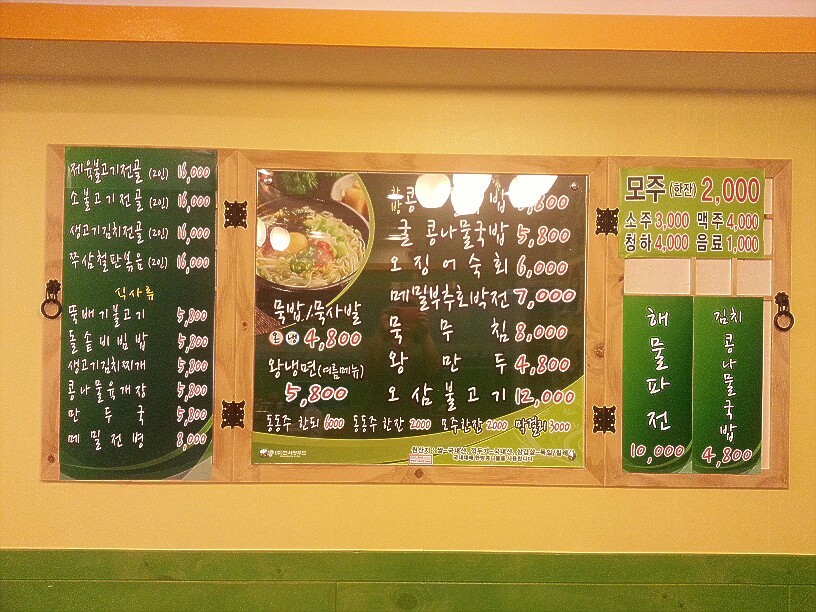 제육불고기전골 (2인) 16,000
소불고기전골 (2인) 16,000
생고기김치전골 (2인) 16,000
쭈삼철판볶음 (2인) 16,000
식사류
뚝배기불고기 5,800
돌솥비빔밥 5,800
생고기김치찌개 5,800
콩나물육개장 5,800
만두국 5,800
메밀전병 8,000
콩 밥
굴 콩나물국밥 5,800
오징어숙회 6,000
메밀부추호박전 7,000
묵무침 8,000
왕만두 4,800
오삼불고기 12,000
묵밥/묵사발
4,800
왕냉면(여름메뉴)
5,800
동동주 한되 6000 동동주 한잔 2000 모주한잔 2000 막걸리 3000
모주 (한잔) 2,000
소주 3,000 맥주 4,000
청하 4,000 음료 1,000
해물파전
10,000
김치
콩나물국밥
4,800